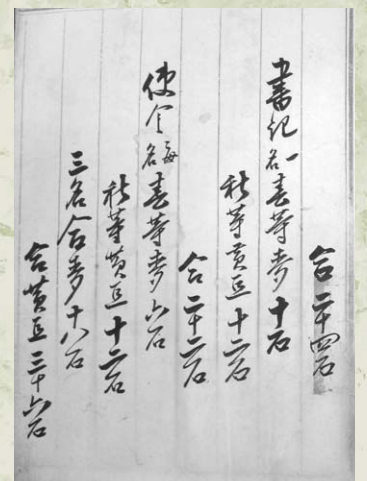 合二十四石
書記一名春等麥十石
秋等黃豆十二石
合二十二石
使令每名春等麥六石
秋等黃豆十二石
三名合麥十八石
合黃豆三十六石